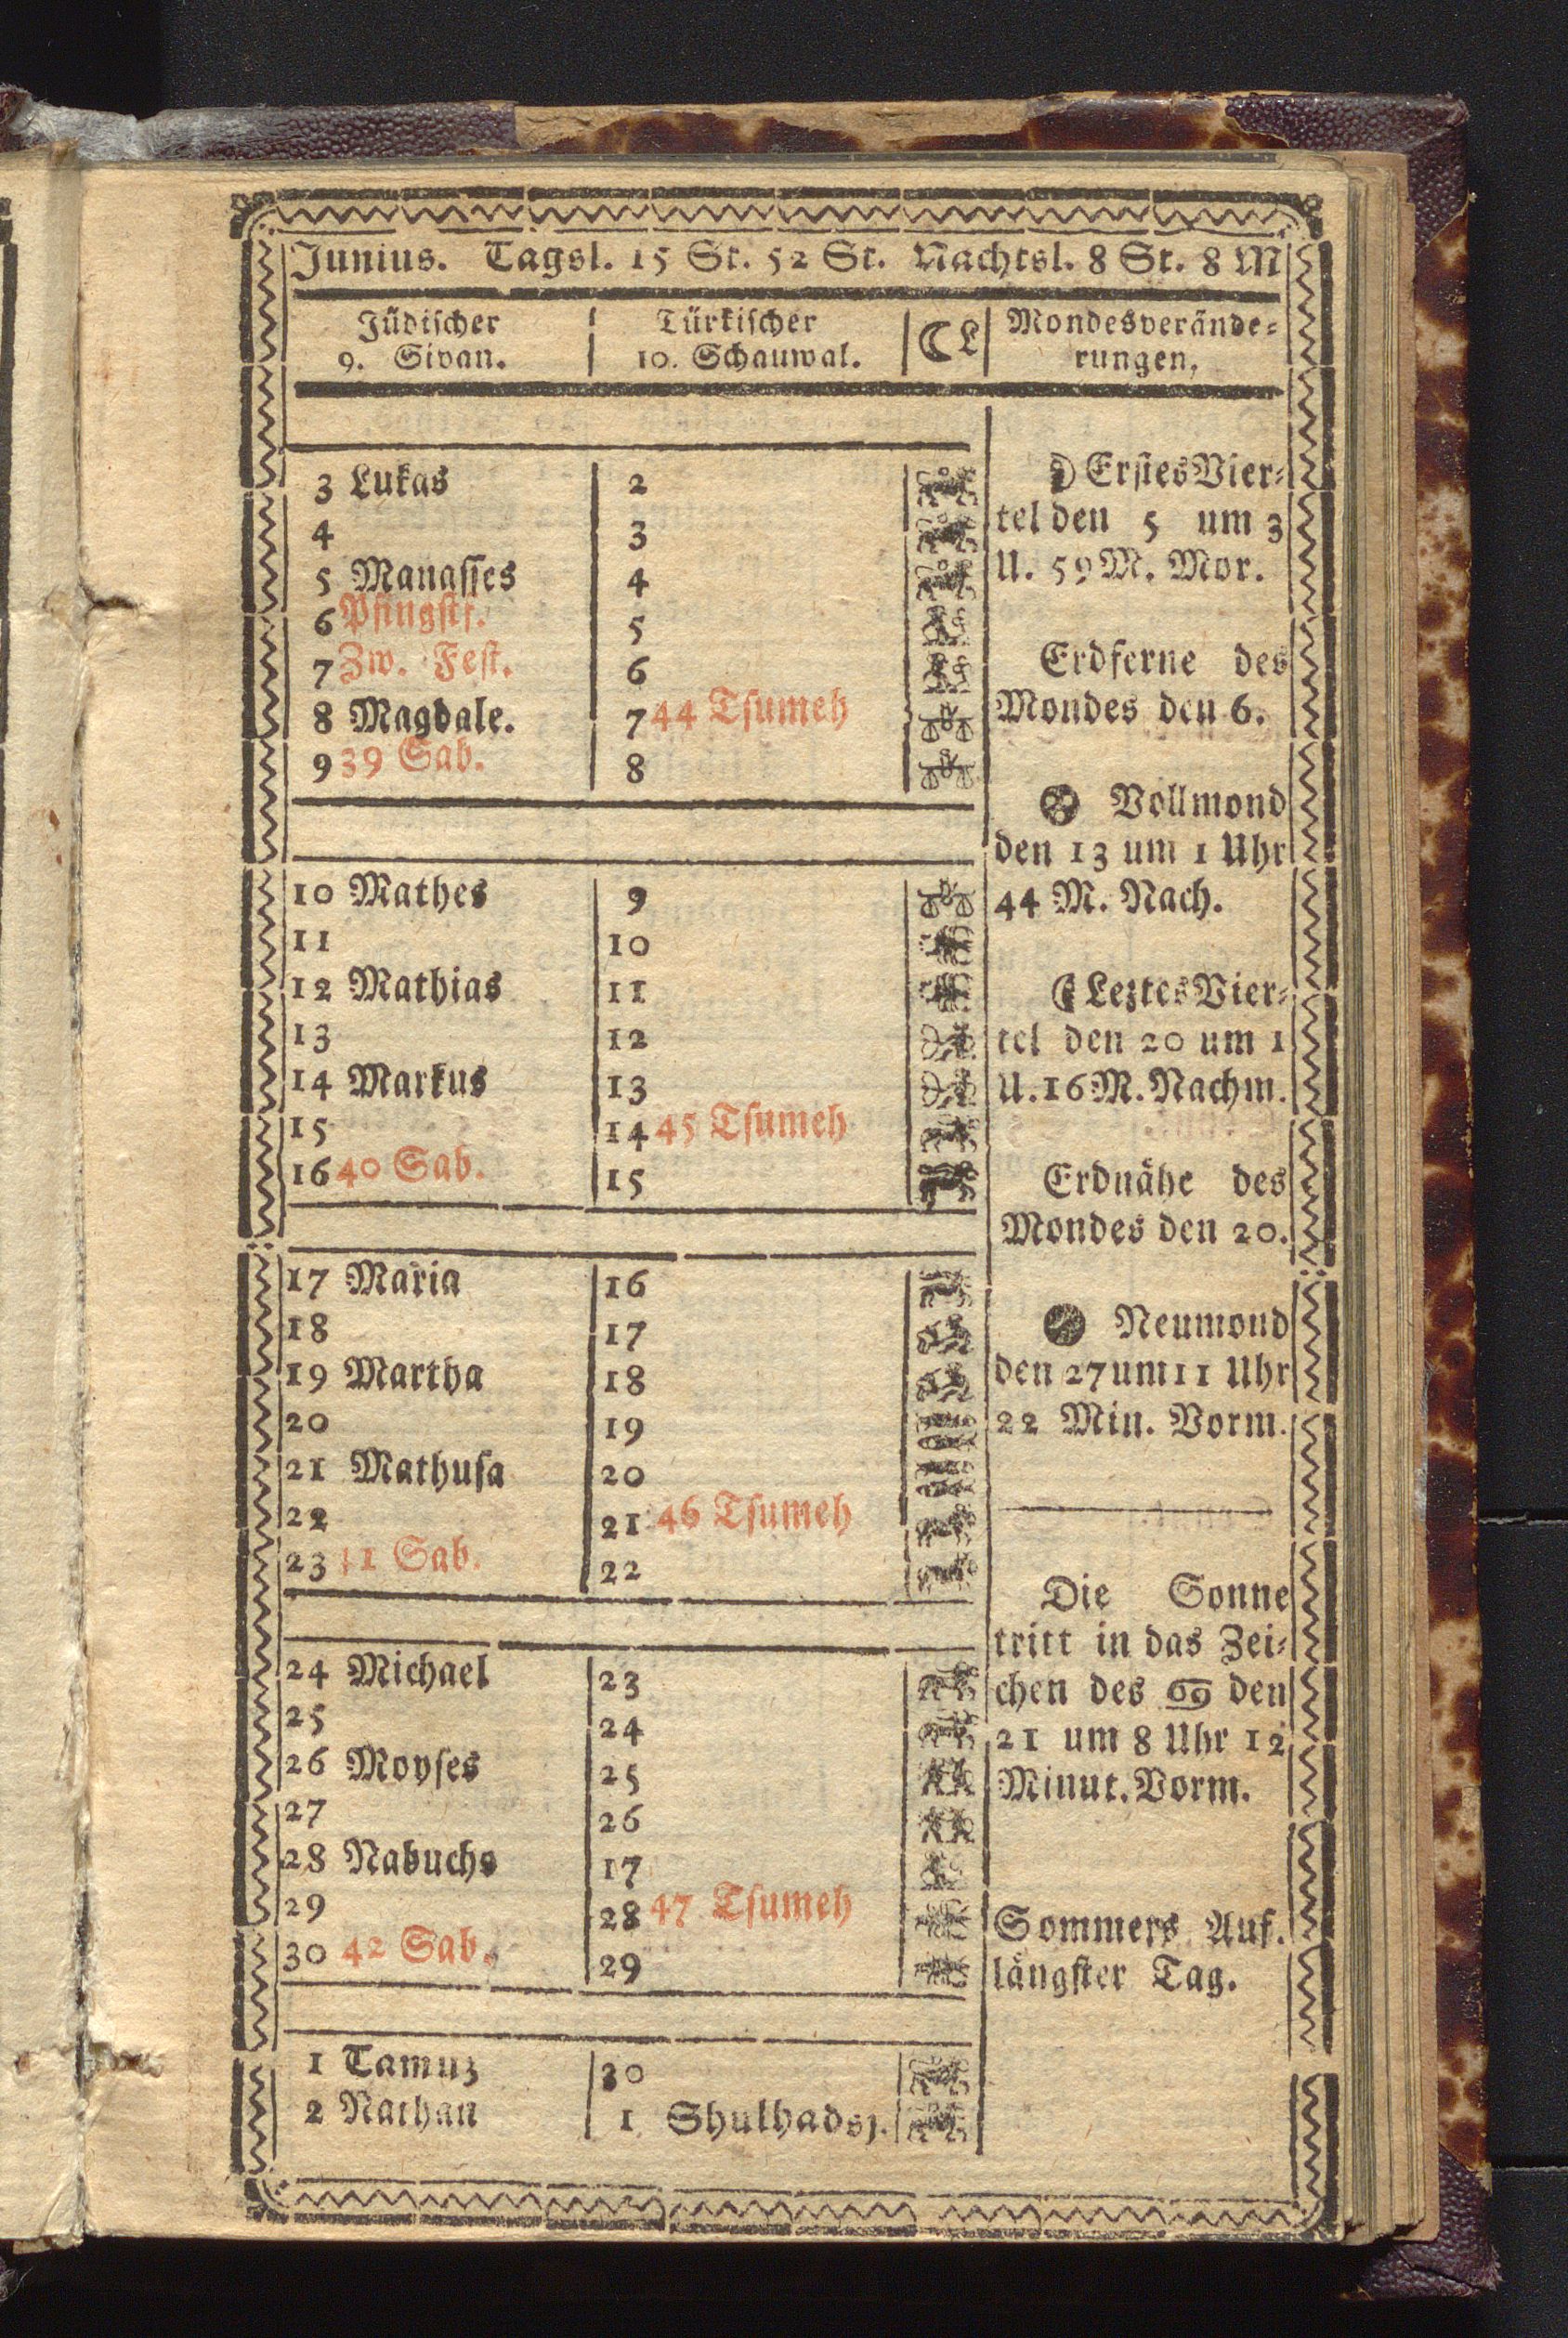 Junius. Tagsl. 15 St. 52 St. Nachtsl. 8 St. 8 M
Jüdischer
9. Sivan.
Türkischer
10. Schauwal.
☾ L
Mondesverände=
rungen.
3 Lukas 2
4 3
5 Manasses 4
6 Pfingstf. 5
7 Zw. Fest. 6
8 Magdale. 7 44 Tsumeh
9 39 Sab. 8
10 Mathes 9
11 10
12 Mathias 11
13 12
14 Markus 13
15 14 45 Tsumeh
16 40 Sab. 15
17 Maria 16
18 17
19 Martha 18
20 19
21 Mathusa 20
22 21 46 Tsumeh
23 41 Sab. 22
24 Michael 23
25 24
26 Moyses 25
27 26
28 Nabuchs 17
29 28 47 Tsumeh
30 42 Sab. 29
1 Tamuz 30
2 Nathan 1 Shulhadsj.
☽ Erstes Vier=
tel den 5 um 3
U. 59 M. Mor.
Erdferne des
Mondes den 6.
Vollmond
den 13 um 1 Uhr
44 M. Nach.
☾ Leztes Vier=
tel den 20 um 1
U. 16 M. Nachm.
Erdnähe des
Mondes den 20.
Neumond
den 27 um 11 Uhr
22 Min. Vorm.
Die Sonne
tritt in das Zei=
chen des ♋ den
21 um 8 Uhr 12
Minut. Vorm.
Sommers Auf.
längster Tag.